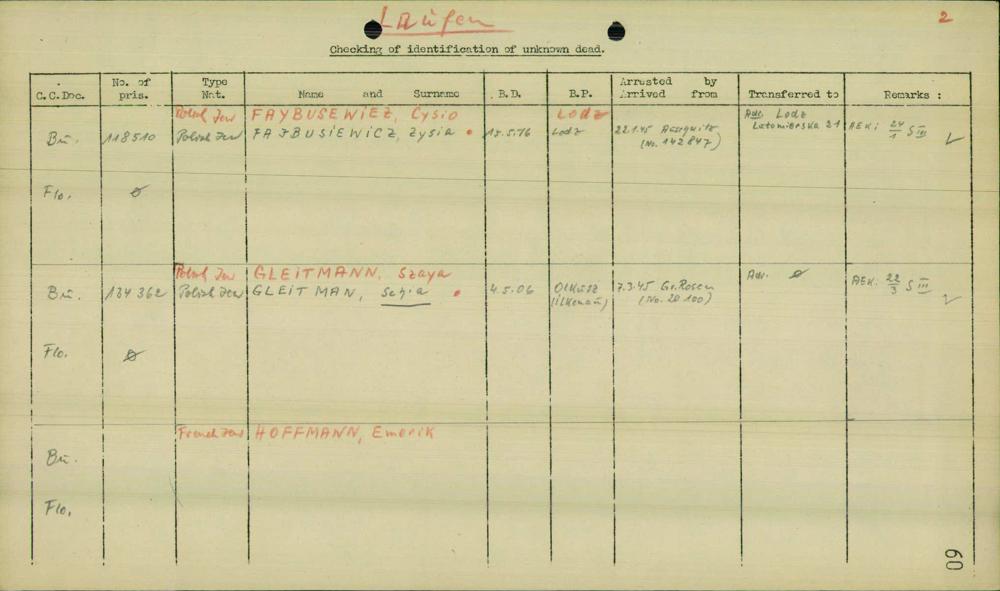 Laufen
2
Checking of identification of unknown dead.
C.C.Doc. No. of pris. Type Nat. Name and Surname B.D. B.P. Arrested by Arrived from Transferred to Remarks :
Polish Jew FAYBUSEWIEZ, Cysio Lodz Adr. Lodz
Bu. 118510 Polish Jew FAJBUSIEWICZ, Zysia 15.5.76 Lodz 22.1.45 Auschwitz Letomierska 21 AEK: 24/1 S III
(No. 142847)
Flo. ∅
Polish Jew GLEITMANN, Szaya Adr. ∅
Bu. 134362 Polish Jew GLEITMAN, 4.5.06 Olkusz 7.3.45 Gr. Rosen AEK: 22/3 S III
(Ilkenau) (No. 20100)
Flo. ∅
French Jew HOFFMANN, Emerik
Bu.
Flo.
60